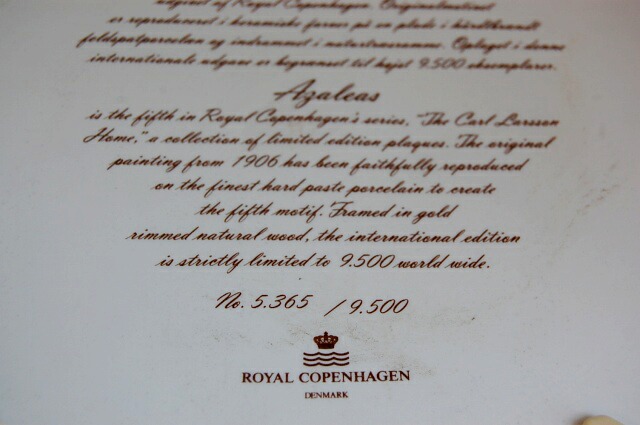 udgivet af Royal Copenhagen. Originalmotivet
er reproduceret i keramiske farver på en plade i hårdtbrændt
feldspatporcelæn og indrammet i naturtræsramme. Oplaget i denne
internationale udgave er begrænset til højst 9.500 eksemplarer.
Azaleas
is the fifth in Royal Copenhagen's series, "The Carl Larsson
Home," a collection of limited edition plaques. The original
painting from 1906 has been faithfully reproduced
on the finest hard paste porcelain to create
the fifth motif. Framed in gold
rimmed natural wood, the international edition
is strictly limited to 9.500 world wide.
No. 5.365 / 9.500
ROYAL COPENHAGEN
DENMARK